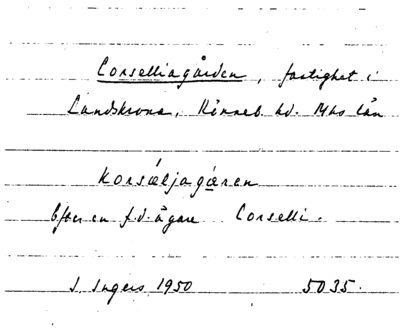 Corselliagården, fastighet i
Landskrona, Rönneb. hd. Mhs län
Korsǽljagǽren
Efter en f.d. ägare Corselli.
I. Ingers 1950 5035.